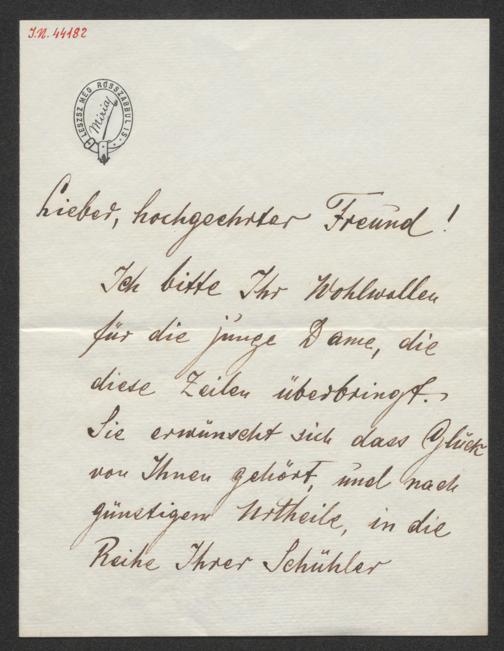 I.N. 44182
LESZSZ MÉG ROSSZABBUL IS.
Lieber, hochgeehrter Freund!
Ich bitte Ihr Wohlwollen
für die junge Dame, die
diese Zeilen überbringt.
Sie erwünscht sich dass Glück
von Ihnen gehört, und nach
günstigem Urtheile, in die
Reihe Ihrer Schühler